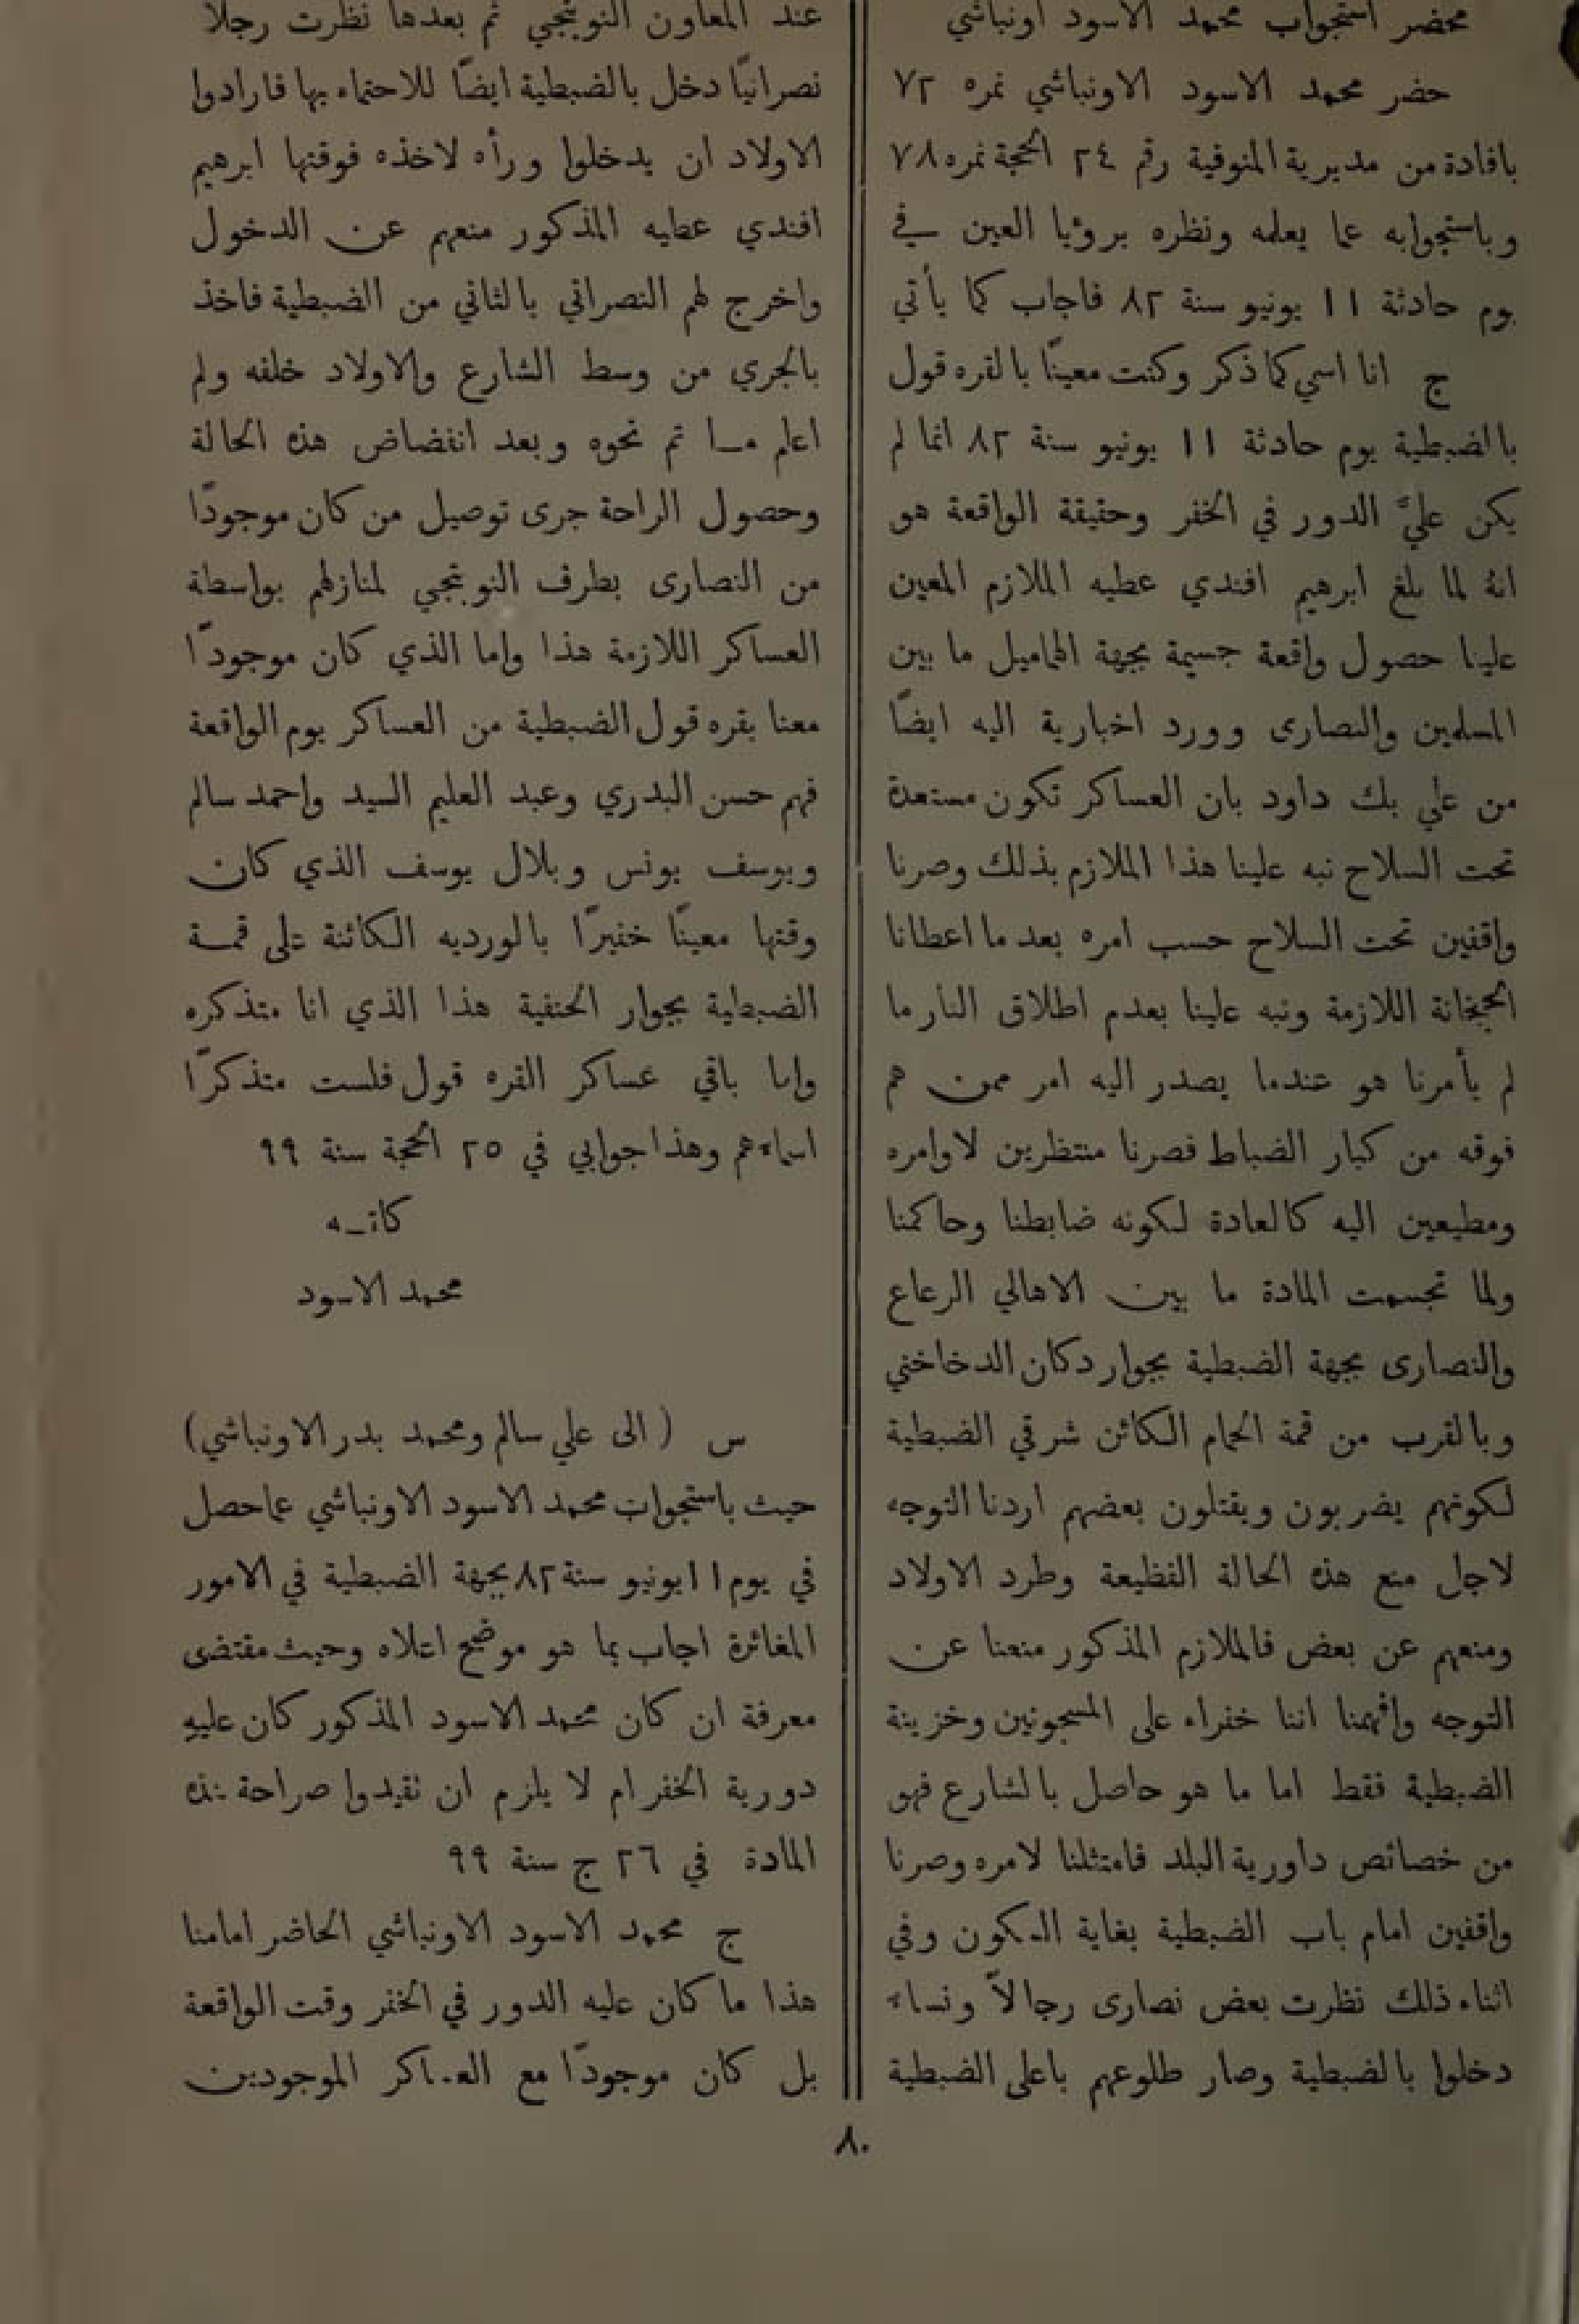 محضر استجواب محمد الاسود اونباشي
حضر محمد الاسود الاونباشي نمره ٧٢
بافادة من مديرية المنوفية رقم ٢٤ الحجة نمره ٧٨
وباستجوابه عما يعلمه ونظره برؤيا العين في
يوم حادثة ١١ يونيو سنة ٨٢ فاجاب كما يأتي
ج انا اسمي كما ذكر وكنت معينًا بالقره قول
بالضبطية يوم حادثة ١١ يونيو سنة ٨٢ انما لم
يكن عليَّ الدور في الخفر وحقيقة الواقعة هو
انهُ لما بلغ ابرهيم افندي عطيه الملازم المعين
علينا حصول واقعة جسيمة بجهة الهاميل ما بين
المسلمين والنصارى وورد اخبارية اليه ايضًا
من علي بك داود بان العساكر تكون مستعدة
تحت السلاح نبه علينا هذا الملازم بذلك وصرنا
واقفين تحت السلاح حسب امره بعد ما اعطانا
الجبخانة اللازمة ونبه علينا بعدم اطلاق النار ما
لم يأمرنا هو عندما يصدر اليه امر ممن هم
فوقه من كبار الضباط فصرنا منتظرين لاوامره
ومطيعين اليه كالعادة لكونه ضابطنا وحاكمنا
ولما تجسمت المادة ما بين الاهالي الرعاع
والنصارى بجهة الضبطية بجوار دكان الدخاخني
وبالقرب من قمة الحمام الكائن شرقي الضبطية
لكونهم يضربون ويقتلون بعضهم اردنا التوجه
لاجل منع هذه الحالة الفظيعة وطرد الاولاد
ومنعهم عن بعض فالملازم المذكور منعنا عن
التوجه وافهمنا اننا خفراء على المسجونين وخزينة
الضبطية فقط اما ما هو حاصل بالشارع فهو
من خصائص داورية البلد فامتثلنا لامره وصرنا
واقفين امام باب الضبطية بغاية السكون وفي
اثناء ذلك نظرت بعض نصارى رجالاً ونساء
دخلوا بالضبطية وصار طلوعهم باعلى الضبطية
عند المعاون النوبتجي ثم بعدها نظرت رجلاً
نصرانيًا دخل بالضبطية ايضًا للاحتماء بها فارادوا
الاولاد ان يدخلوا ورأه لاخذه فوقتها ابرهيم
افندي عطيه المذكور منعهم عن الدخول
واخرج لهم النصراني بالثاني من الضبطية فاخذ
بالجري من وسط الشارع والاولاد خلفه ولم
اعلم ما تم نحوه وبعد انفضاض هذه الحالة
وحصول الراحة جرى توصيل من كان موجودًا
من النصارى بطرف النوبتجي لمنازلهم بواسطة
العساكر اللازمة هذا واما الذي كان موجودًا
معنا بقره قول الضبطية من العساكر يوم الواقعة
فهم حسن البدري وعبد العليم السيد واحمد سالم
ويوسف يونس وبلال يوسف الذي كان
وقتها معينًا خفيرًا بالورديه الكائنة على قمة
الضبطية بجوار الحنفية هذا الذي انا متذكره
واما باقي عساكر القره قول فلست متذكرًا
اسماءهم وهذا جوابي في ٢٥ الحجة سنة ٩٩
كاتبه
محمد الاسود
س ( الى علي سالم ومحمد بدر الاونباشي)
حيث باستجواب محمد الاسود الاونباشي عما حصل
في يوم ١١ يونيو سنة ٨٢ بجهة الضبطية في الامور
المغائرة اجاب بما هو موضح اعلاه وحيث مقتضى
معرفة ان كان محمد الاسود المذكور كان عليهِ
دورية الخفر ام لا يلزم ان تفيدوا صراحة هذه
المادة في ٢٦ ج سنة ٩٩
ج محمد الاسود الاونباشي الحاضر امامنا
هذا ما كان عليه الدور في الخفر وقت الواقعة
بل كان موجودًا مع العساكر الموجودين
٨٠